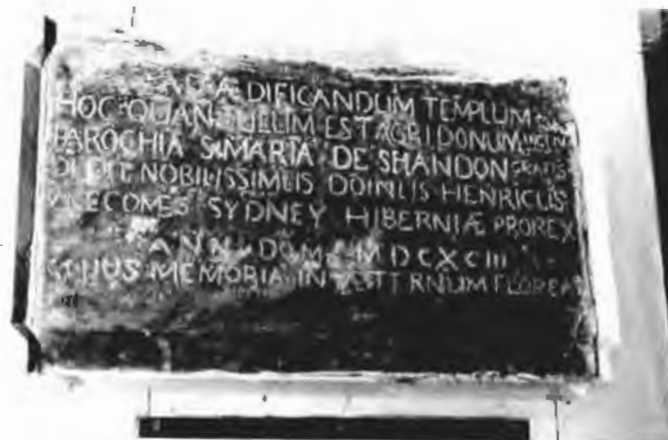 ÆDIFICANDUM TEMPLUM
HOC QUANTULUM EST AGRI DONUM
PAROCHIA S MARIÆ DE SHANDON GRATIS
DEDIT NOBILISSIMUS DOMUS HENRICUS
VICECOMES SYDNEY HIBERNIÆ PROREX
ANN DOM MDCXCIII
CUIUS MEMORIA IN ÆTERNUM FLOREAT